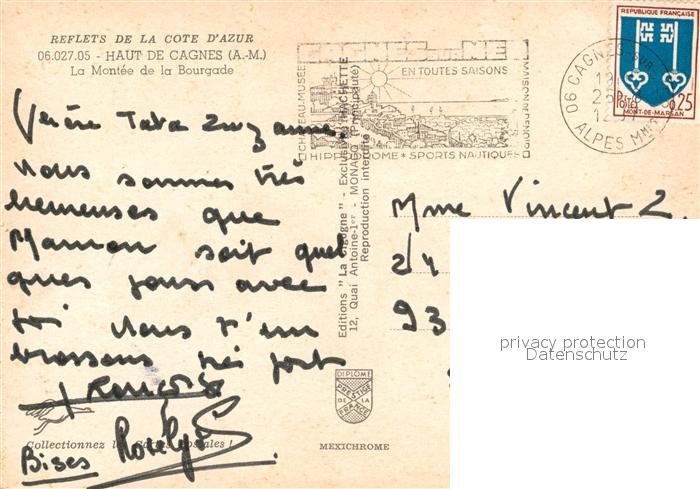 REFLETS DE LA COTE D'AZUR
06.027.05 - HAUT DE CAGNES (A.-M.)
La Montée de la Bourgade
CAGNES-sur-MER
EN TOUTES SAISONS
CHATEAU-MUSÉE
MAISON DE RENOIR
HIPPODROME * SPORTS NAUTIQUES
06 CAGNES-sur-
ALPES MMES
REPUBLIQUE FRANÇAISE
POSTES
0,25
MONT-DE-MARSAN
Tata
nous sommes très
heureuses que
Maman soit quel
ques jours avec
toi nous t'em
brassons très fort
Bises
Mme Vincent L
24
93
Editions "La Cigogne" - Exclusivité HACHETTE
12, Quai Antoine-1er - MONACO (Principauté)
Reproduction interdite
privacy protection
Datenschutz
DIPLOME
PRESTIGE
DE LA
FRANCE
Collectionnez les Cartes Postales !
MEXICHROME